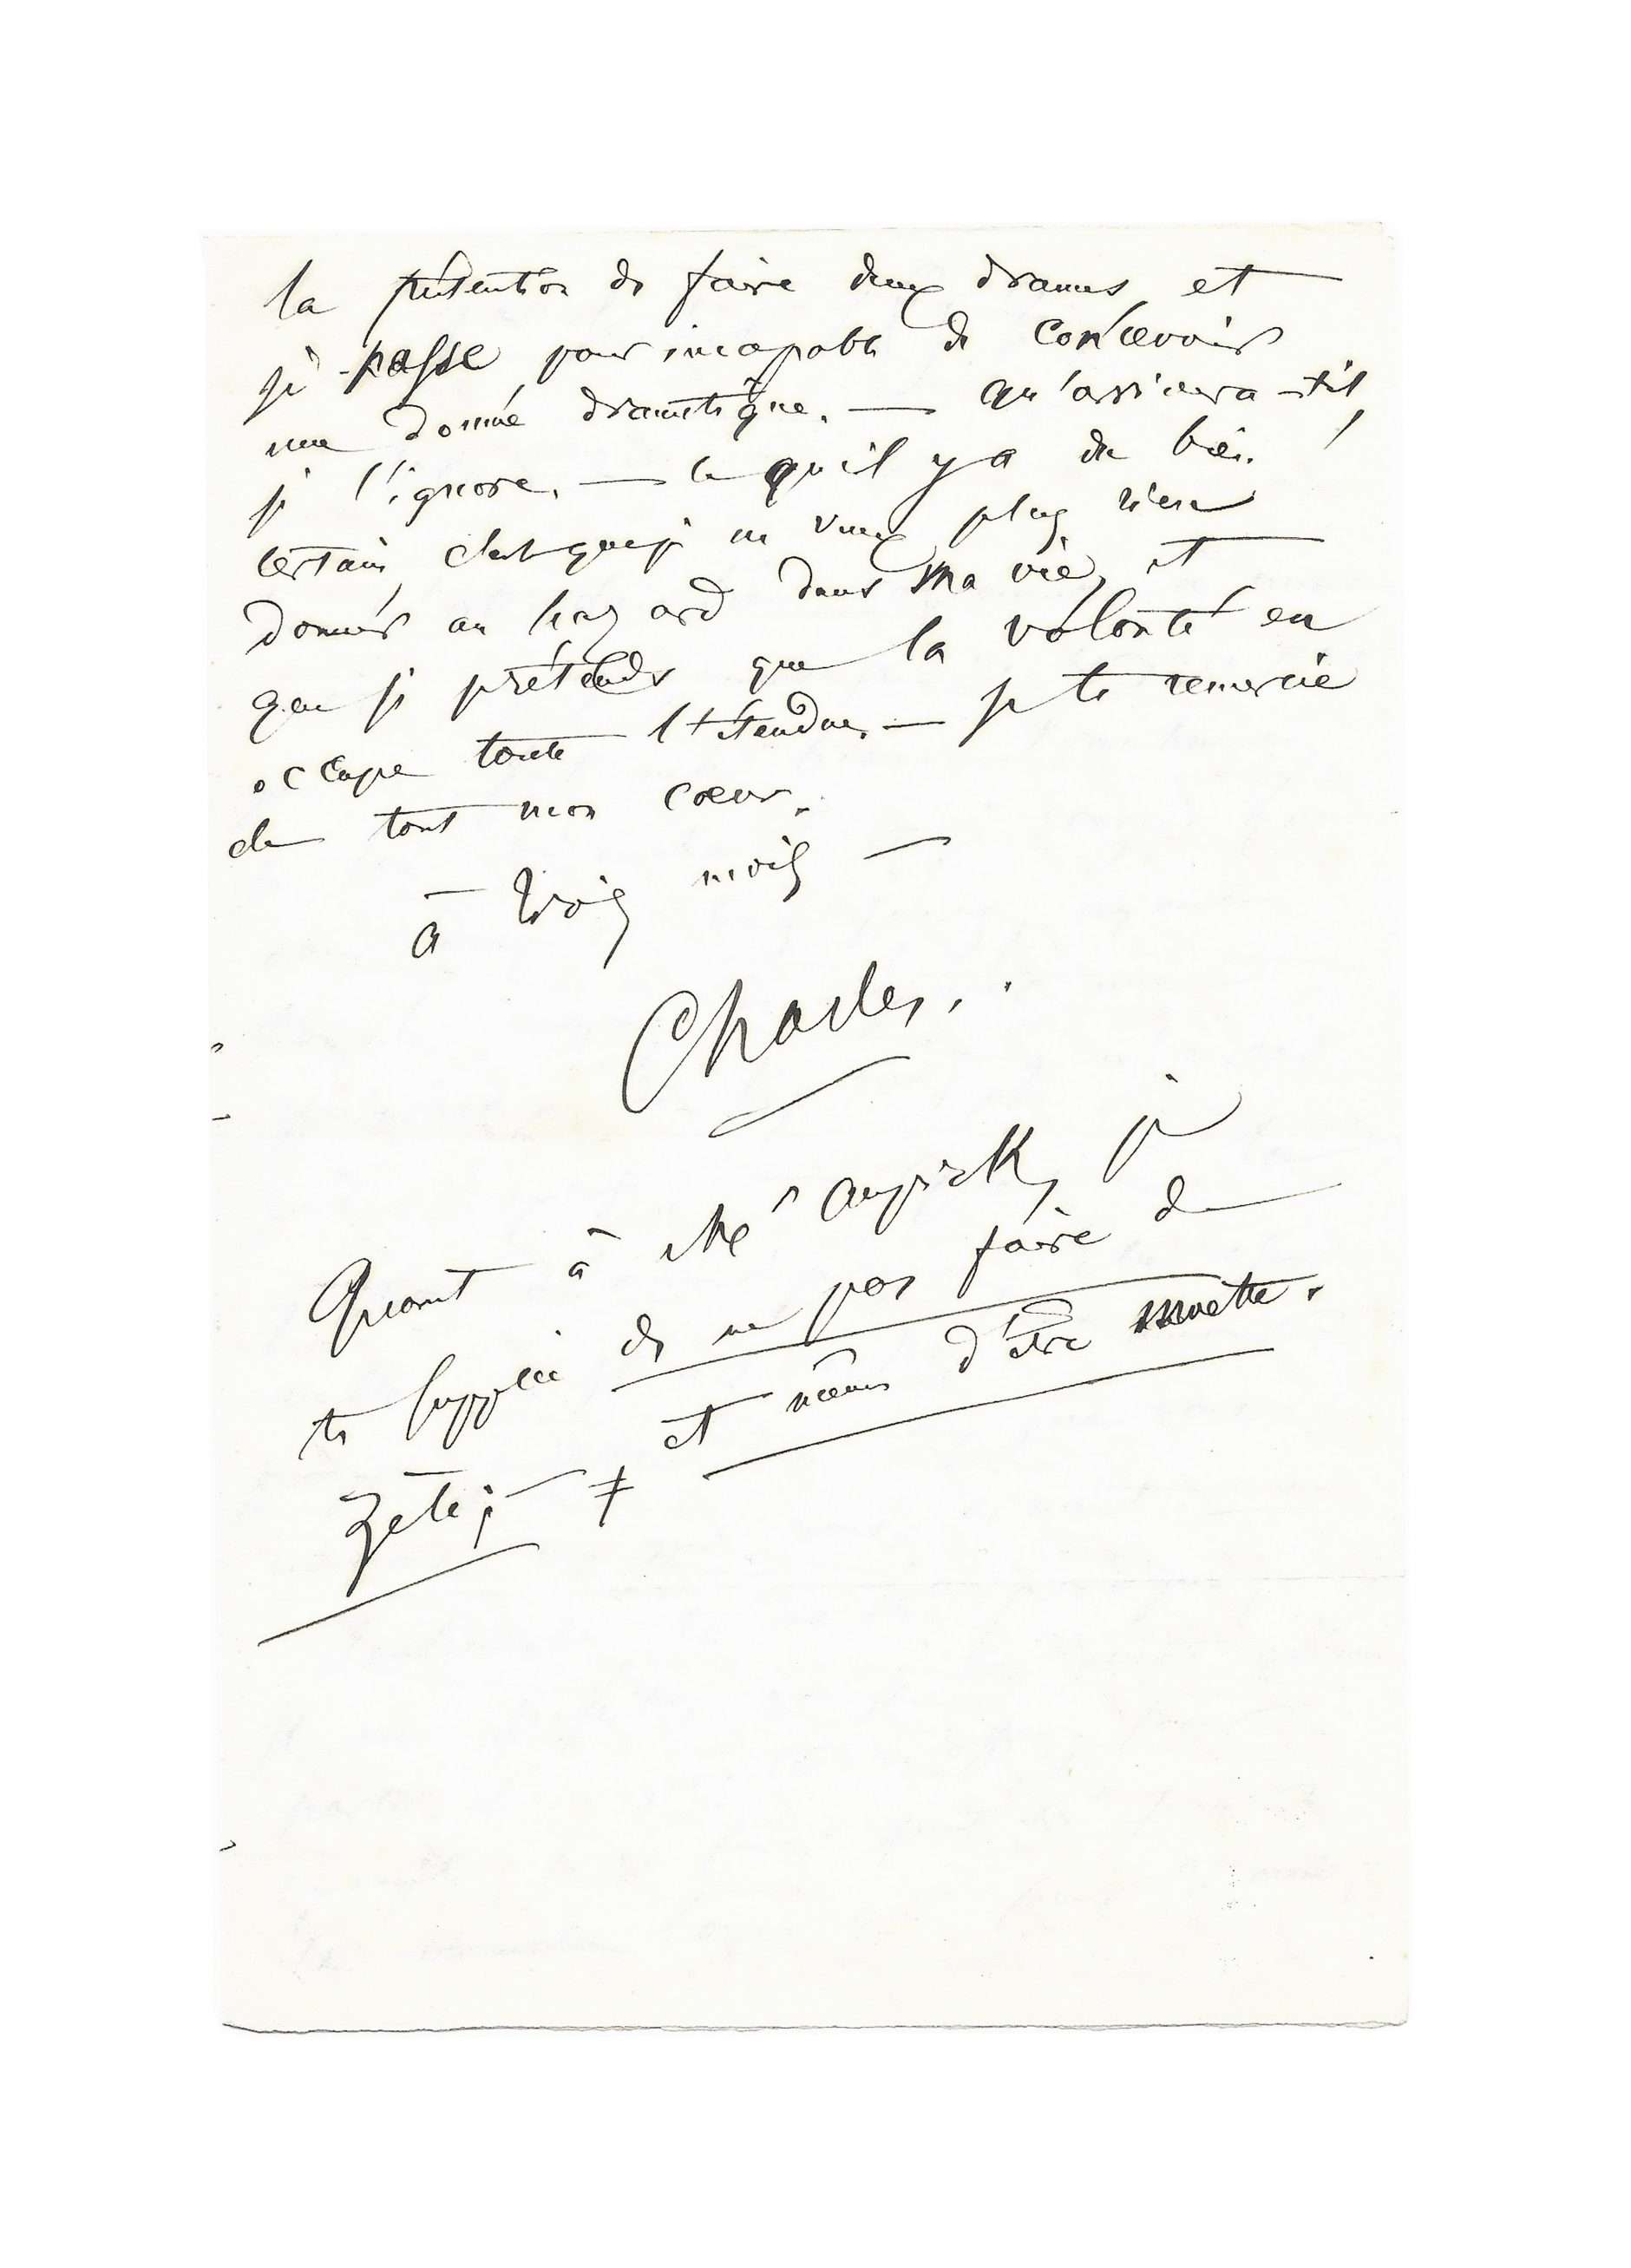 la prétention de faire deux drames, et
je passe pour incapable de concevoir
une donnée dramatique. — qu'arrivera-t-il,
je l'ignore. — ce qu'il y a de bien
certain c'est que je ne veux plus rien
donner au hazard dans ma vie, et
que je prétends que la volonté en
occupe toute l'étendue. — je te remercie
de tout mon cœur.
à trois mois —
Charles.
Quant à Mr Aupick, je
te supplie de ne pas faire de
zèle; — ≠ et même d'être muette.